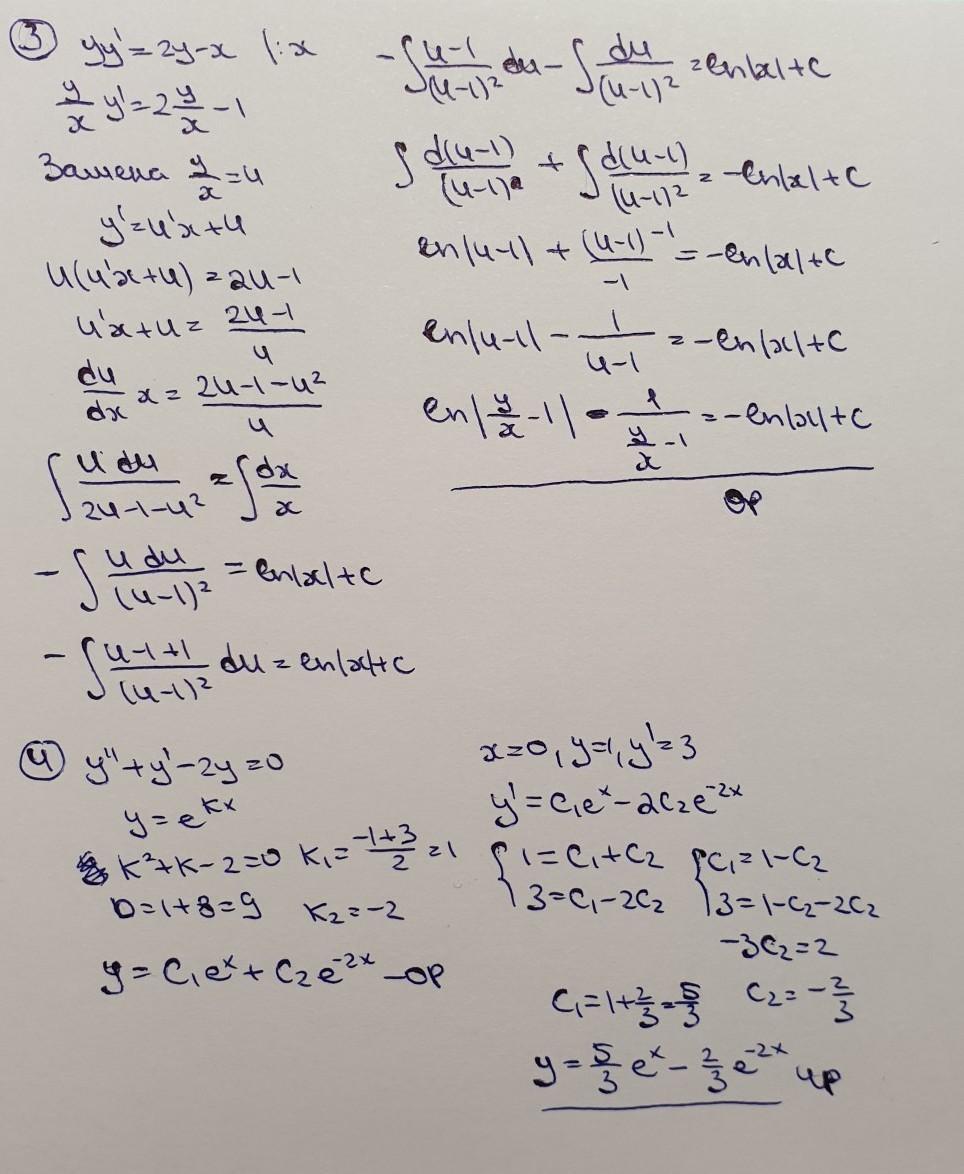 ③ yy' = 2y - x |:x
y/x y' = 2 y/x - 1
Замена y/x = u
y' = u'x + u
u(u'x + u) = 2u - 1
u'x + u = (2u - 1)/u
du/dx x = (2u - 1 - u²)/u
∫ u du/(2u - 1 - u²) = ∫ dx/x
- ∫ u du/(u - 1)² = ln|x| + c
- ∫ (u - 1 + 1)/(u - 1)² du = ln|x| + c
- ∫ (u - 1)/(u - 1)² du - ∫ du/(u - 1)² = ln|x| + c
∫ d(u - 1)/(u - 1) + ∫ d(u - 1)/(u - 1)² = -ln|x| + c
ln|u - 1| + (u - 1)⁻¹/-1 = -ln|x| + c
ln|u - 1| - 1/(u - 1) = -ln|x| + c
ln|y/x - 1| - 1/(y/x - 1) = -ln|x| + c
ор
④ y'' + y' - 2y = 0
y = e^kx
k² + k - 2 = 0 k₁ = (-1 + 3)/2 = 1
D = 1 + 8 = 9 k₂ = -2
y = C₁eˣ + C₂e⁻²ˣ - ор
x = 0, y = 1, y' = 3
y' = C₁eˣ - 2C₂e⁻²ˣ
{ 1 = C₁ + C₂ { C₁ = 1 - C₂
3 = C₁ - 2C₂ 3 = 1 - C₂ - 2C₂
-3C₂ = 2
C₁ = 1 + 2/3 = 5/3 C₂ = -2/3
y = 5/3 eˣ - 2/3 e⁻²ˣ чр